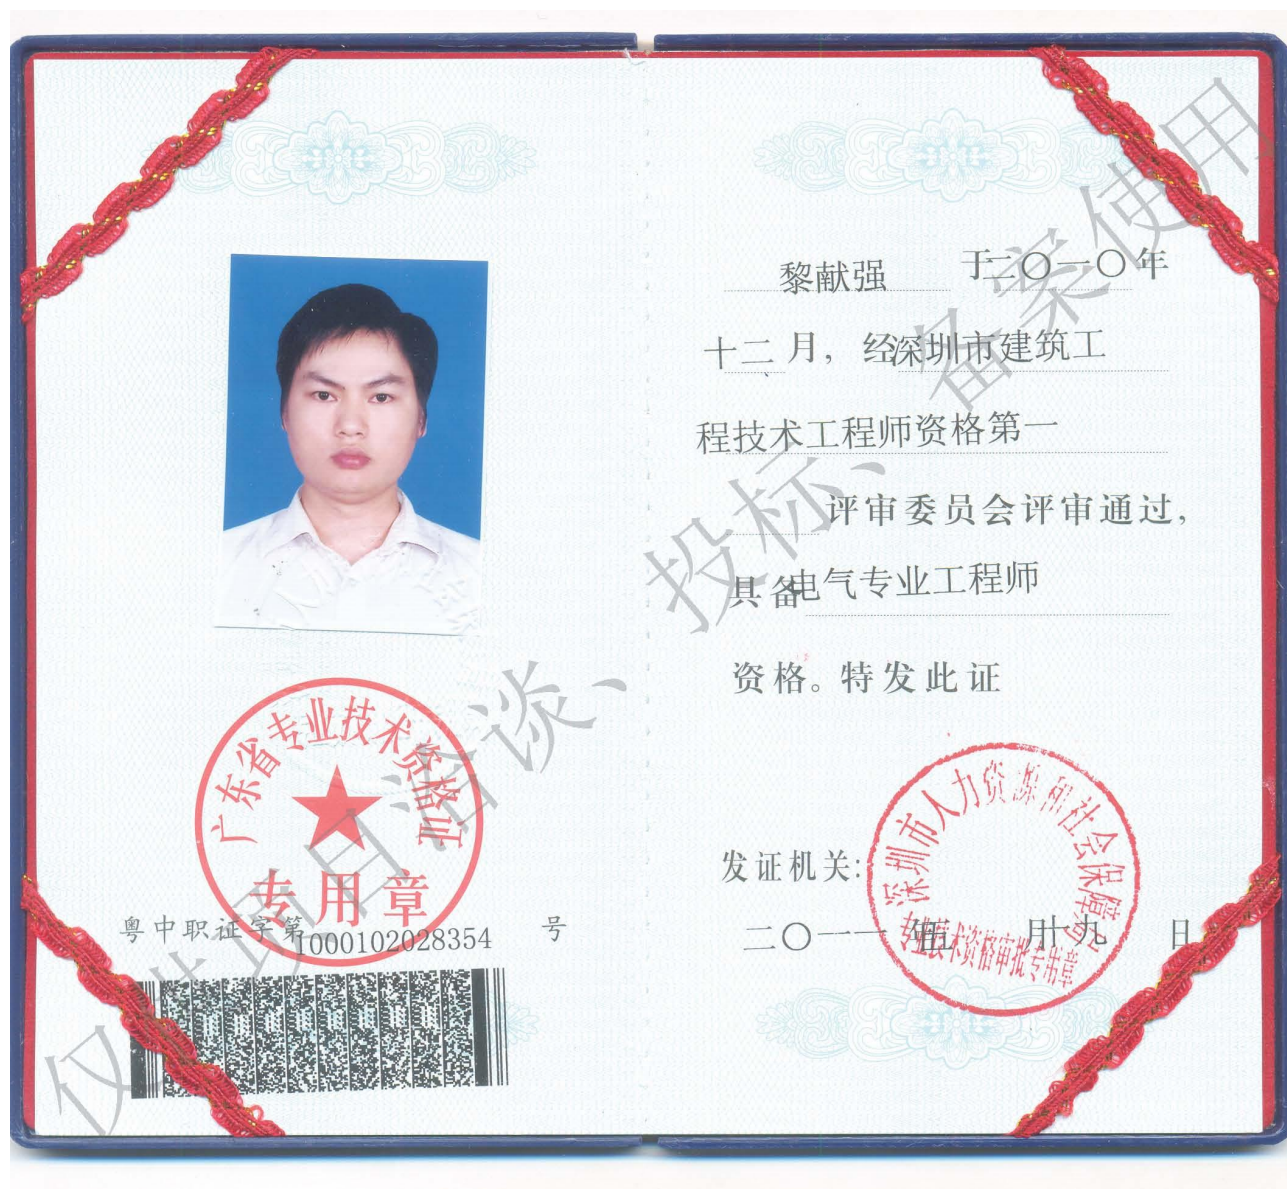 广东省专业技术资格证
专用章
粤中职证字第1000102028354号
黎献强 于二〇一〇年
十二月，经深圳市建筑工
程技术工程师资格第一
评审委员会评审通过，
具备电气专业工程师
资格。特发此证
发证机关：
深圳市人力资源和社会保障局
专业技术资格审批专用章
二〇一一年五月十九日
仅供项目洽谈、投标、备案使用